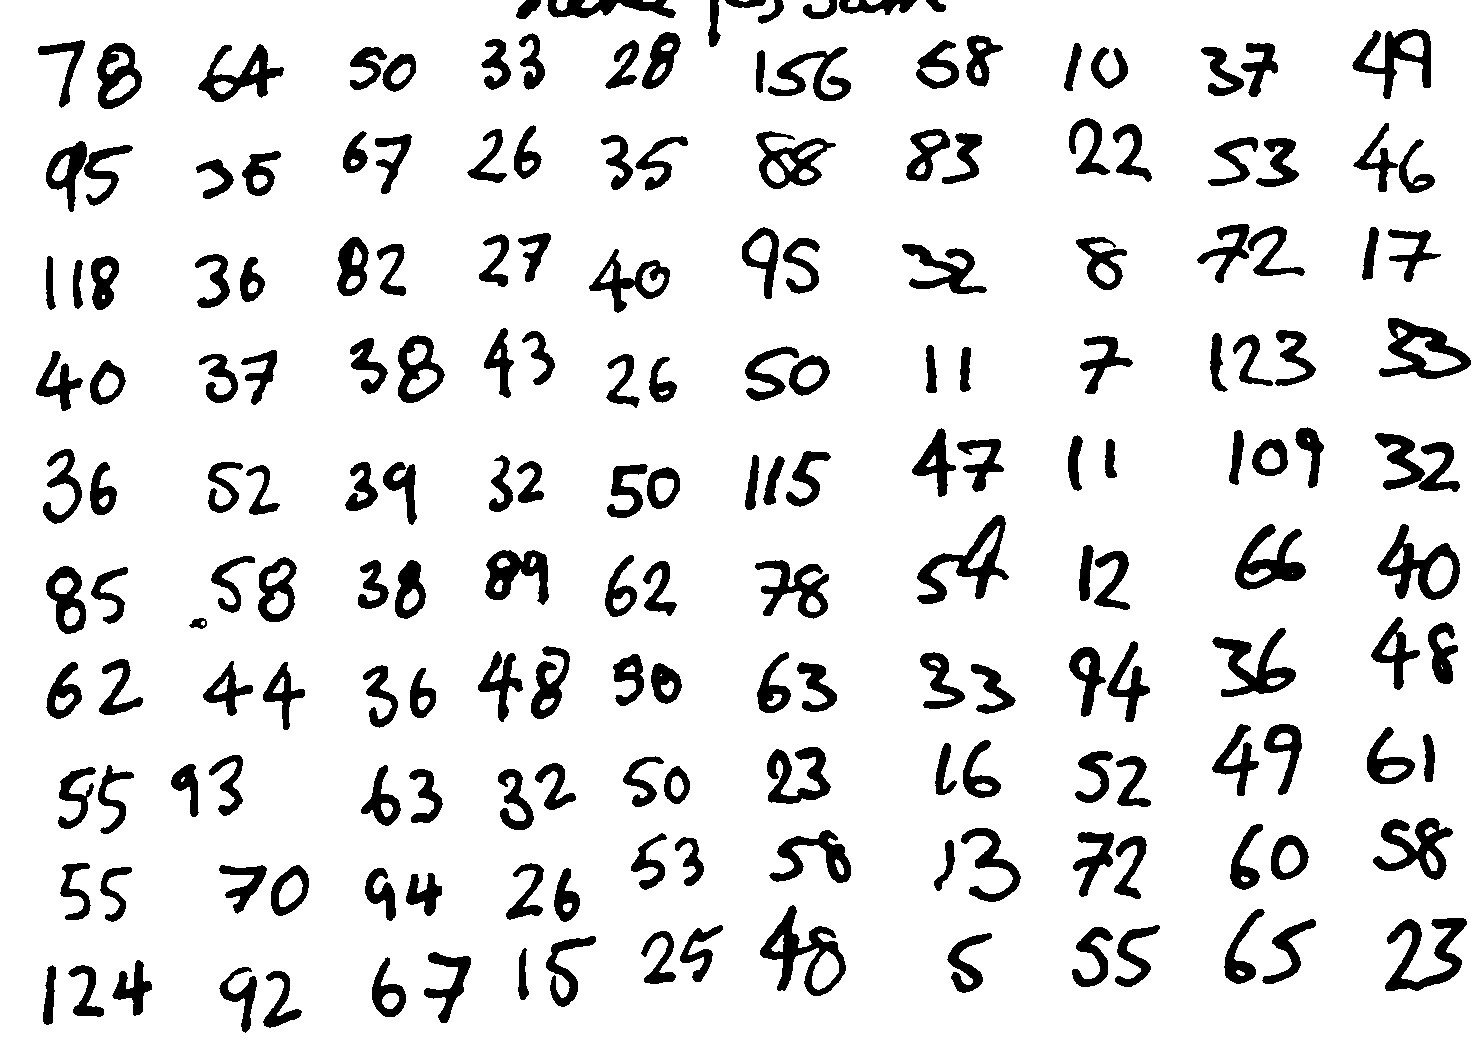 78 64 50 33 28 156 68 10 37 49
95 36 67 26 35 88 83 22 53 46
118 36 82 27 40 95 32 8 72 17
40 37 38 43 26 50 11 7 123 33
36 52 39 32 50 115 47 11 109 32
85 58 38 89 62 78 54 12 66 40
62 44 36 48 50 63 33 94 36 48
55 93 63 32 50 23 16 52 49 61
55 70 94 26 53 58 13 72 60 58
124 92 67 15 25 48 5 55 65 23